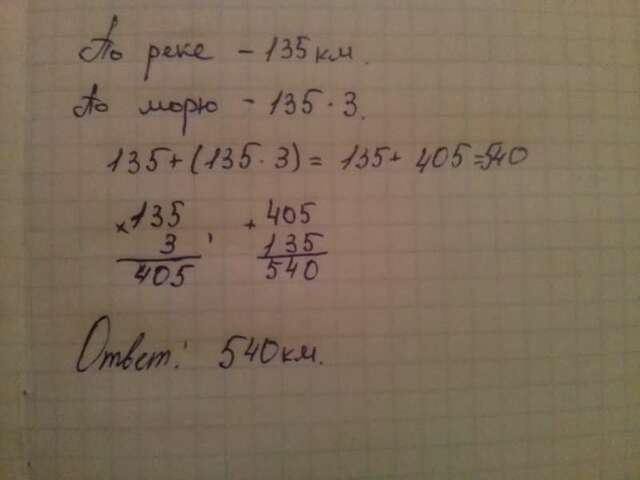 По реке - 135 км.
По морю - 135 · 3.
135 + (135 · 3) = 135 + 405 = 540
× 135 + 405
3 ; 135
405 540
Ответ: 540 км.